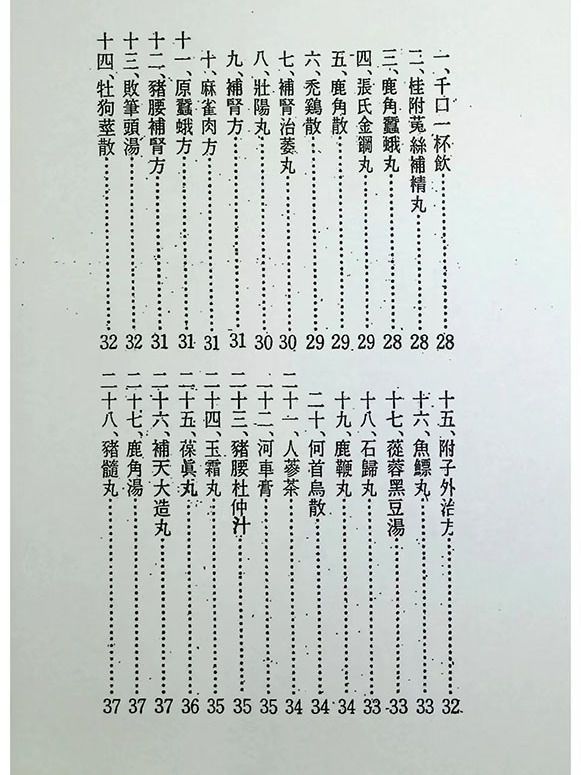 一、千口一杯飲……28
二、桂附菟絲補精丸……28
三、鹿角蠶蛾丸……28
四、張氏金鋼丸……29
五、鹿角散……29
六、禿鷄散……29
七、補腎治萎丸……30
八、壯陽丸……30
九、補腎方……31
十、麻雀肉方……31
十一、原蠶蛾方……31
十二、豬腰補腎方……31
十三、敗筆頭湯……32
十四、牡狗莖散……32
十五、附子外治方……32
十六、魚鰾丸……33
十七、蓯蓉黑豆湯……33
十八、石歸丸……33
十九、鹿鞭丸……34
二十、何首烏散……34
二十一、人蔘茶……34
二十二、河車膏……35
二十三、豬腰杜仲汁……35
二十四、玉霜丸……35
二十五、葆眞丸……36
二十六、補天大造丸……37
二十七、鹿角湯……37
二十八、豬髓丸……37